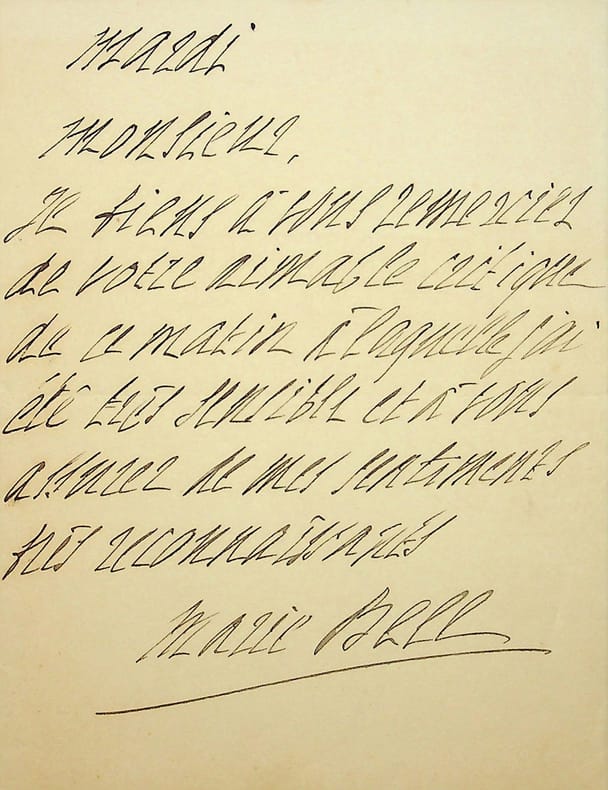 Mardi
Monsieur,
Je tiens à vous remercier
de votre aimable critique
de ce matin à laquelle j'ai
été très sensible et à vous
assurer de mes sentiments
très reconnaissants
Marie Bell